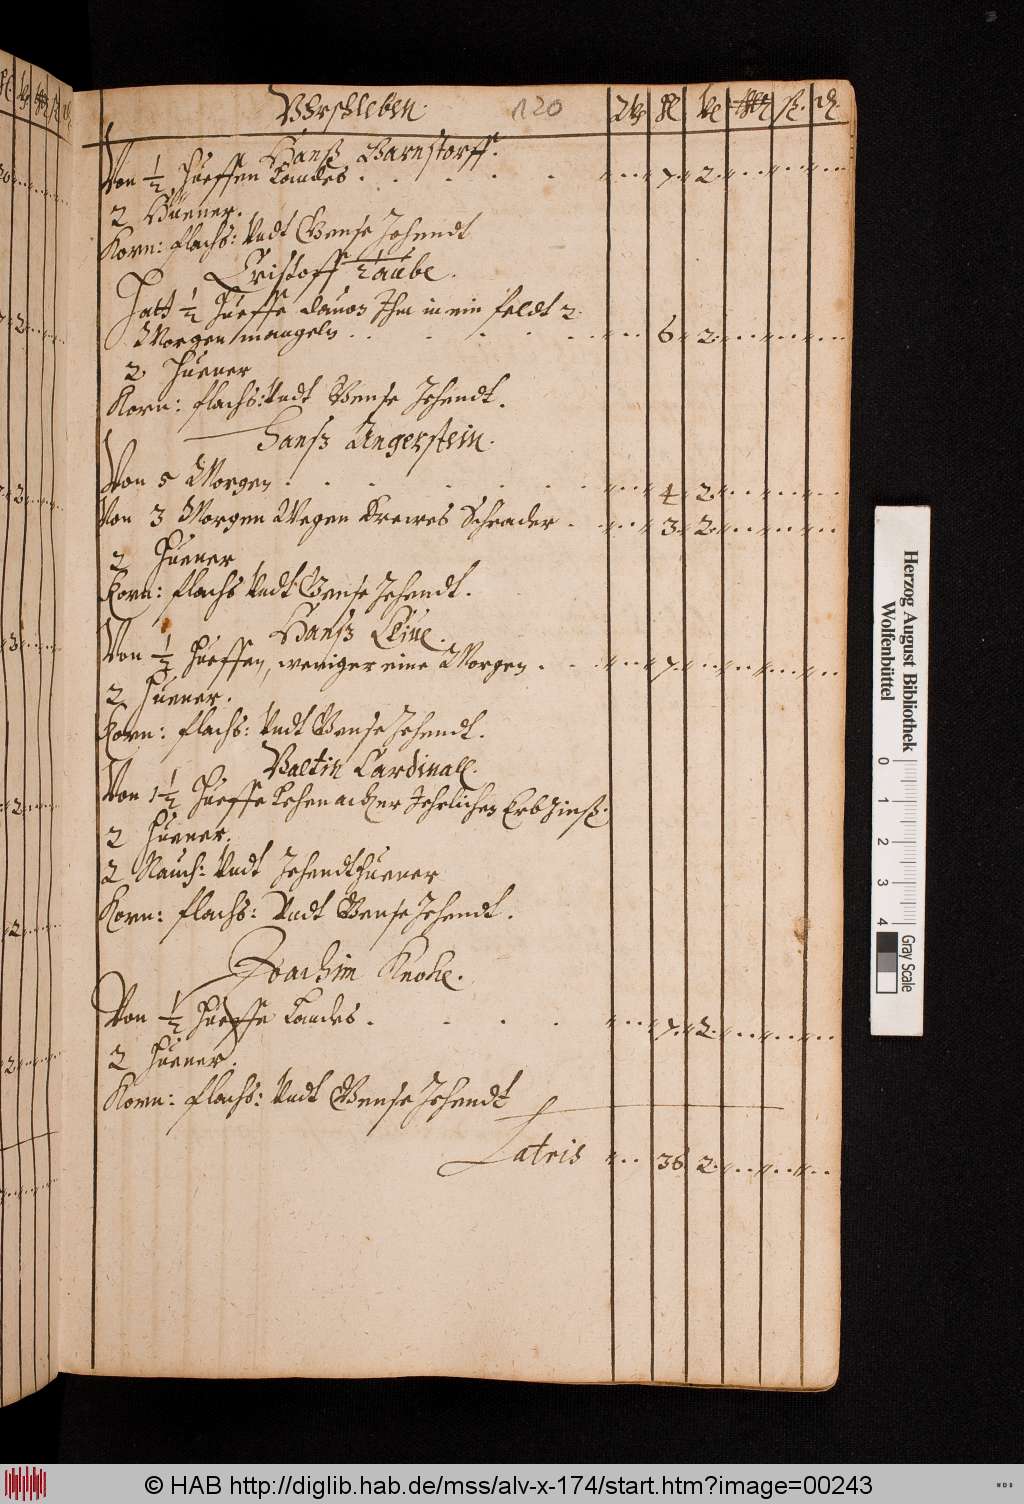 120
Hanß Barnstorff.
Von ½ Hueffen Landes . . . . 7 2
2 Hüener.
Korn: flachs: Undt Gense Zehendt
Cristoff Taube.
Hatt ½ Hueffe dauon Ihm in ein feldt 2
Morgen mangeln . . . . 6 2
2 Huener
Korn: flachs: Undt Gense Zehendt.
Hanß Angerstein.
Von 5 Morgen . . . . 4 2
Von 3 Morgen Wegen Drewes Schrader . 3 2
2 Huener
Korn: flachs Undt Gense Zehendt.
Hanß
Von ½ Hueffen, weniger eine Morgen . . 7
2 Huener.
Korn: flachs: Undt Gense Zehendt.
Valtin Cardinall.
Von 1½ Hueffe Lehenacker Jehrlichen Erbzinß.
2 Huener.
2 Rauch: Undt Zehendthuener
Korn: flachs: Undt Gense Zehendt.
Joachim Knoke.
Von ½ Hueffe Landes . . . . 7 2
2 Huener.
Korn: flachs: Undt Gense Zehendt
Latris 36 2
Herzog August Bibliothek
Wolfenbüttel
0 1 2 3 4
Gray Scale
© HAB http://diglib.hab.de/mss/alv-x-174/start.htm?image=00243